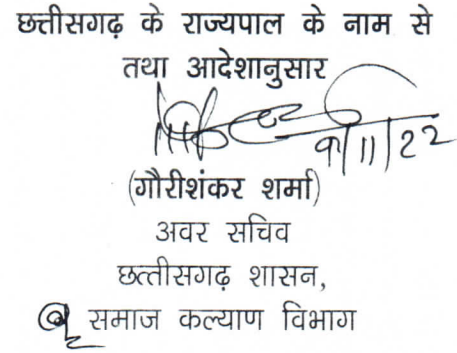 छत्तीसगढ़ के राज्यपाल के नाम से
तथा आदेशानुसार
/11/22
(गौरीशंकर शर्मा)
अवर सचिव
छत्तीसगढ़ शासन,
समाज कल्याण विभाग